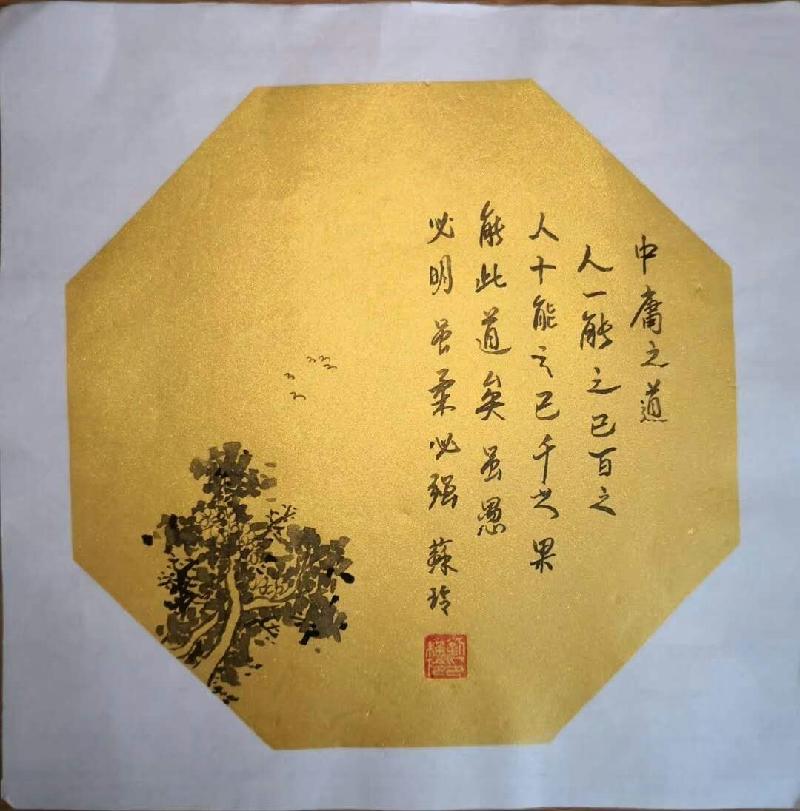 中庸之道
人一能之己百之
人十能之己千之果
能此道矣虽愚
必明虽柔必强 蘇玲